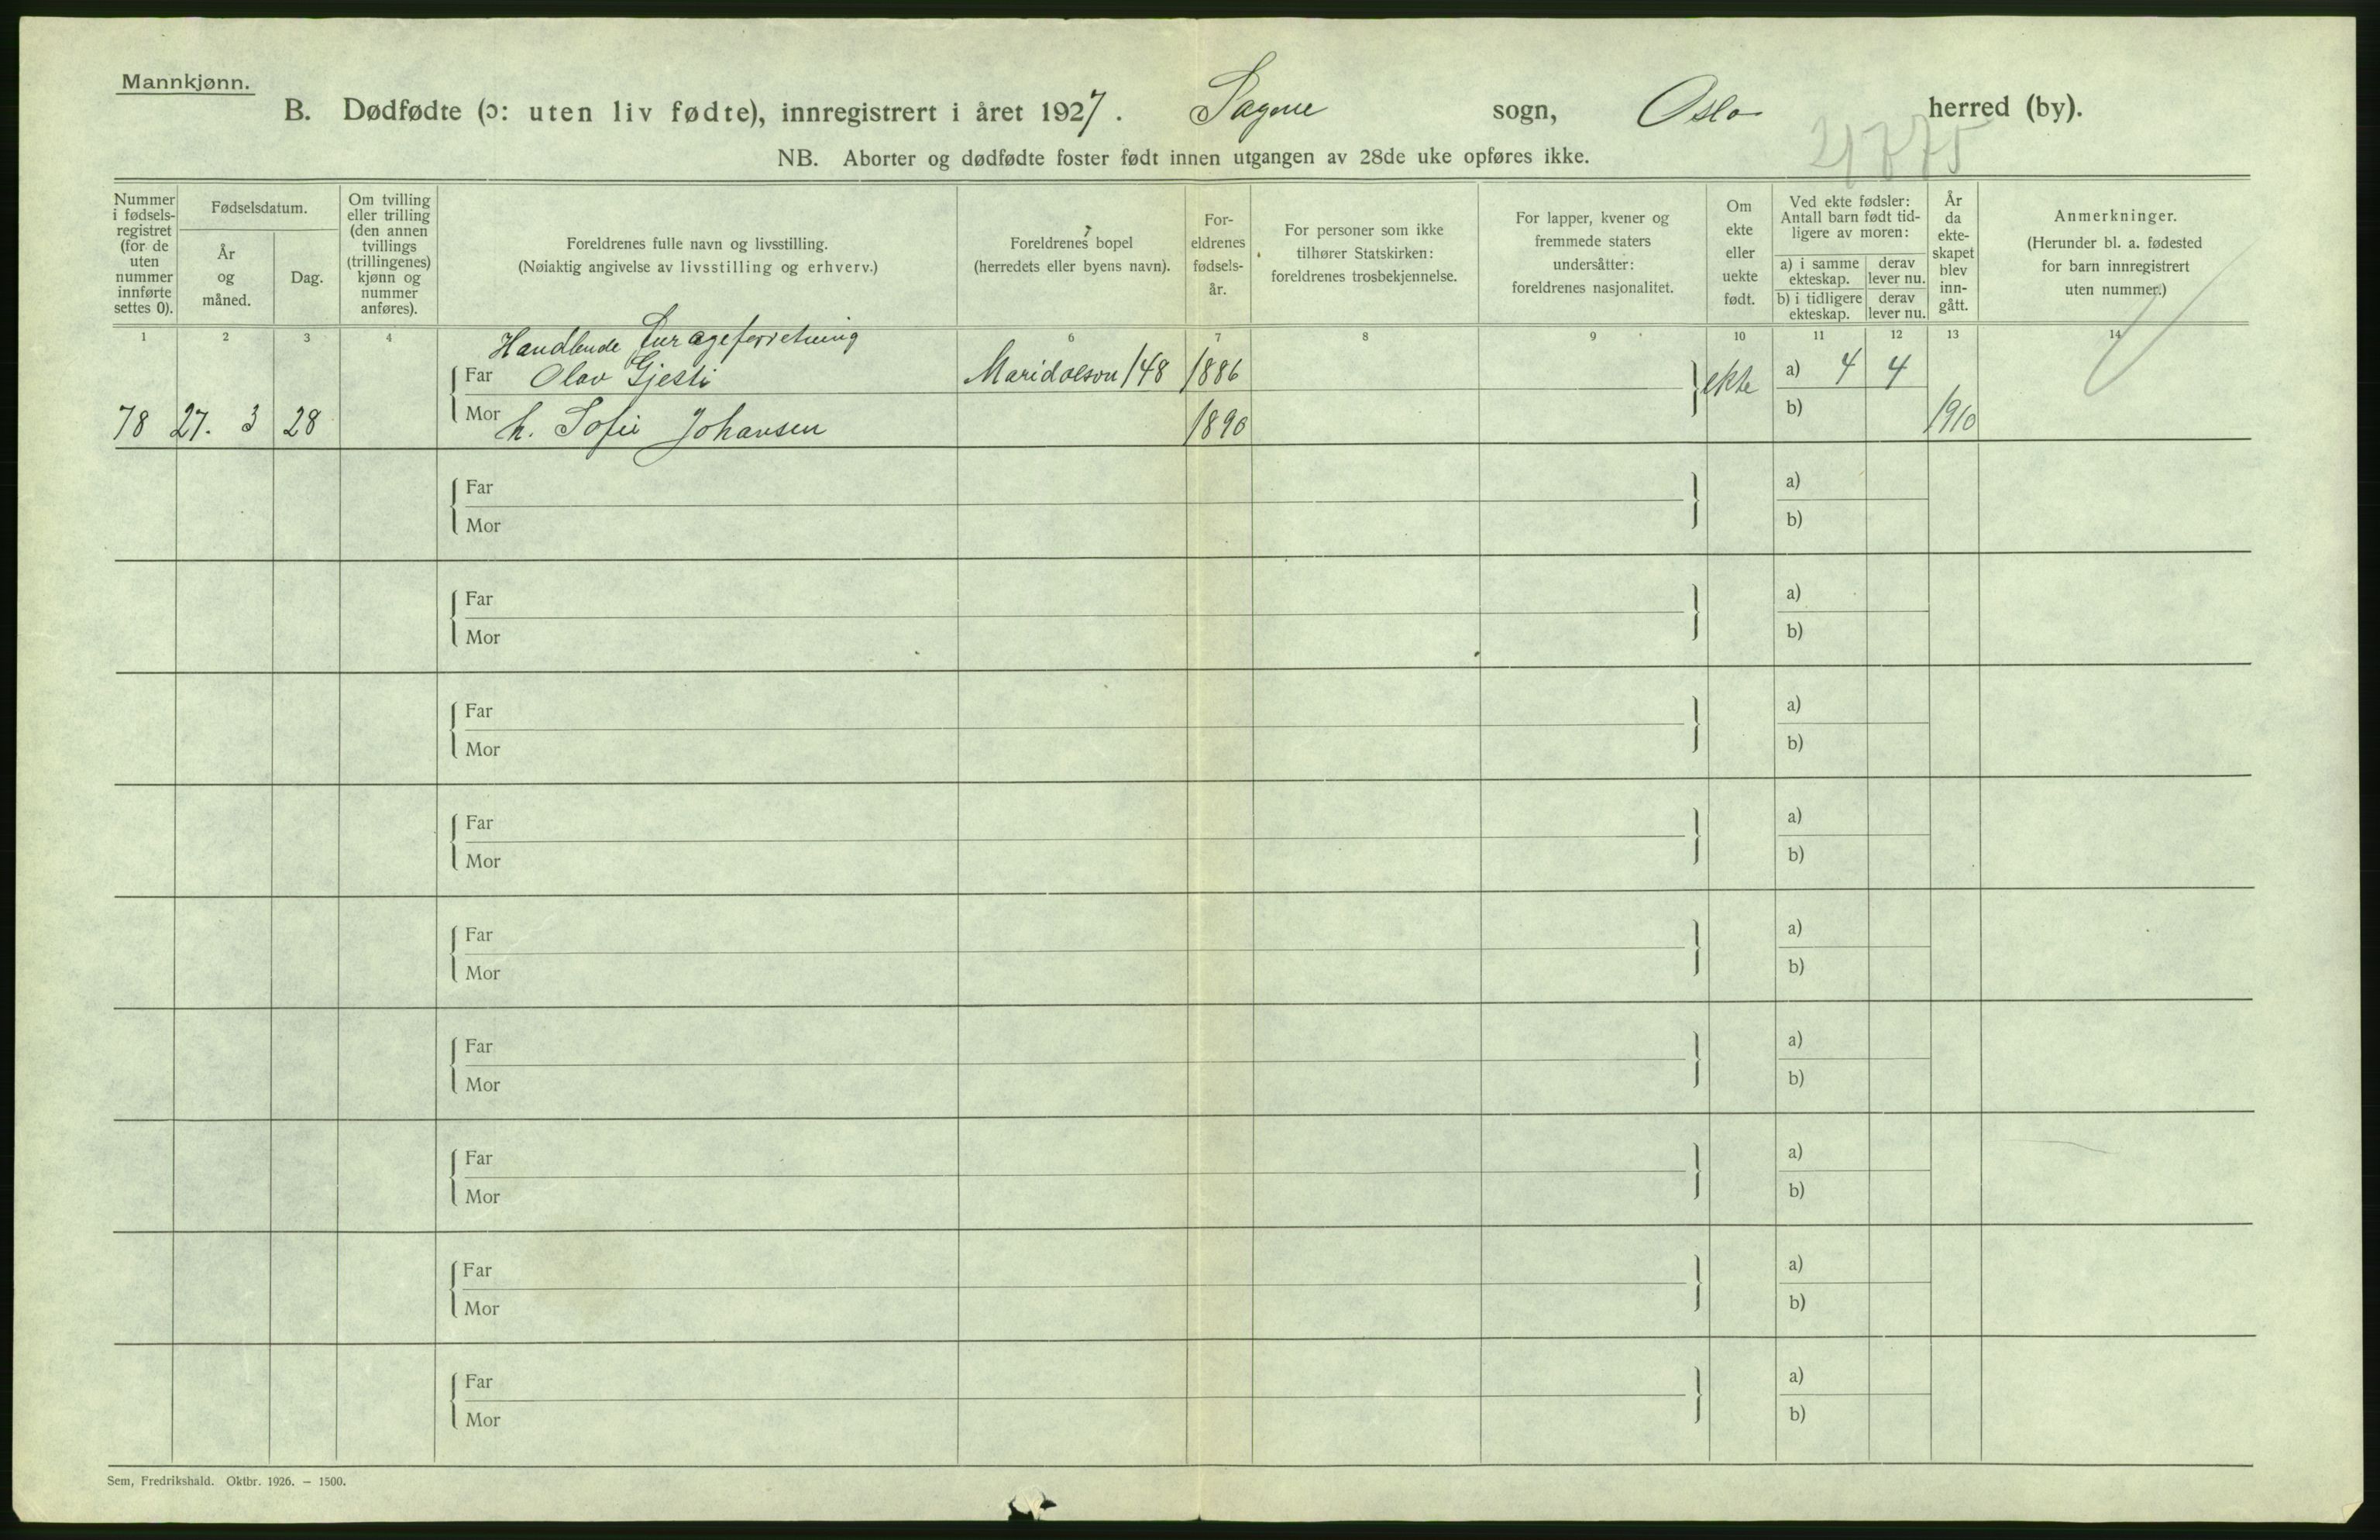 Mannkjønn.
B. Dødfødte (ɔ: uten liv fødte), innregistrert i året 1927. Sagene sogn, Oslo herred (by).
NB. Aborter og dødfødte foster født innen utgangen av 28de uke opføres ikke.
Nummer
i fødsels-
registret
(for de
uten
nummer
innførte
settes 0).
Fødselsdatum.
År
og
måned.
Dag.
Om tvilling
eller trilling
(den annen
tvillings
(trillingenes)
kjønn og
nummer
anføres).
Foreldrenes fulle navn og livsstilling.
(Nøiaktig angivelse av livsstilling og erhverv.)
Foreldrenes bopel
(herredets eller byens navn).
For-
eldrenes
fødsels-
år.
For personer som ikke
tilhører Statskirken:
foreldrenes trosbekjennelse.
For lapper, kvener og
fremmede staters
undersåtter:
foreldrenes nasjonalitet.
Om
ekte
eller
uekte
født.
Ved ekte fødsler:
Antall barn født tid-
ligere av moren:
a) i samme
ekteskap.
derav
lever nu.
b) i tidligere
ekteskap.
derav
lever nu.
År
da
ekte-
skapet
blev
inn-
gått.
Anmerkninger.
(Herunder bl. a. fødested
for barn innregistrert
uten nummer.)
1 2 3 4 6 7 8 9 10 11 12 13 14
Handlende Furageforretning
Far Olav Gjesti Maridalsvn 148 1886 ekte a) 4 4
78 27. 3 28 Mor h. Sofie Johansen 1890 b) 1910
Far a)
Mor b)
Far a)
Mor b)
Far a)
Mor b)
Far a)
Mor b)
Far a)
Mor b)
Far a)
Mor b)
Far a)
Mor b)
Far a)
Mor b)
Far a)
Mor b)
Sem, Fredrikshald. Oktbr. 1926. – 1500.